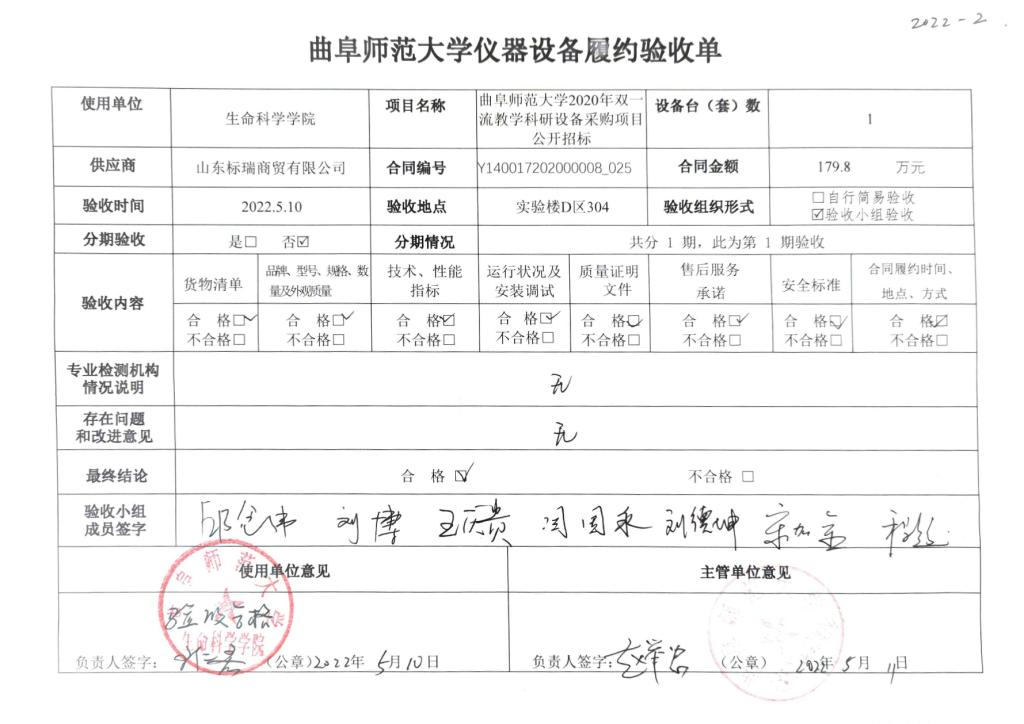 2022-2
曲阜师范大学仪器设备履约验收单
使用单位 生命科学学院 项目名称 曲阜师范大学2020年双一流教学科研设备采购项目公开招标 设备台（套）数 1
供应商 山东标瑞商贸有限公司 合同编号 Y140017202000008_025 合同金额 179.8 万元
验收时间 2022.5.10 验收地点 实验楼D区304 验收组织形式 □自行简易验收
☑验收小组验收
分期验收 是□ 否☑ 分期情况 共分 1 期，此为第 1 期验收
验收内容
货物清单 品牌、型号、规格、数量及外观质量 技术、性能指标 运行状况及安装调试 质量证明文件 售后服务承诺 安全标准 合同履约时间、地点、方式
合 格☑ 合 格☑ 合 格☑ 合 格☑ 合 格☑ 合 格☑ 合 格☑ 合 格☑
不合格□ 不合格□ 不合格□ 不合格□ 不合格□ 不合格□ 不合格□ 不合格□
专业检测机构
情况说明 无
存在问题
和改进意见 无
最终结论 合 格 ☑ 不合格 □
验收小组
成员签字 刘博 王庆贵 闫国永 刘德坤
使用单位意见 主管单位意见
师范大学
验收合格
生命科学学院
负责人签字： （公章）2022年 5月10日 负责人签字： （公章） 2022年 5月 11日